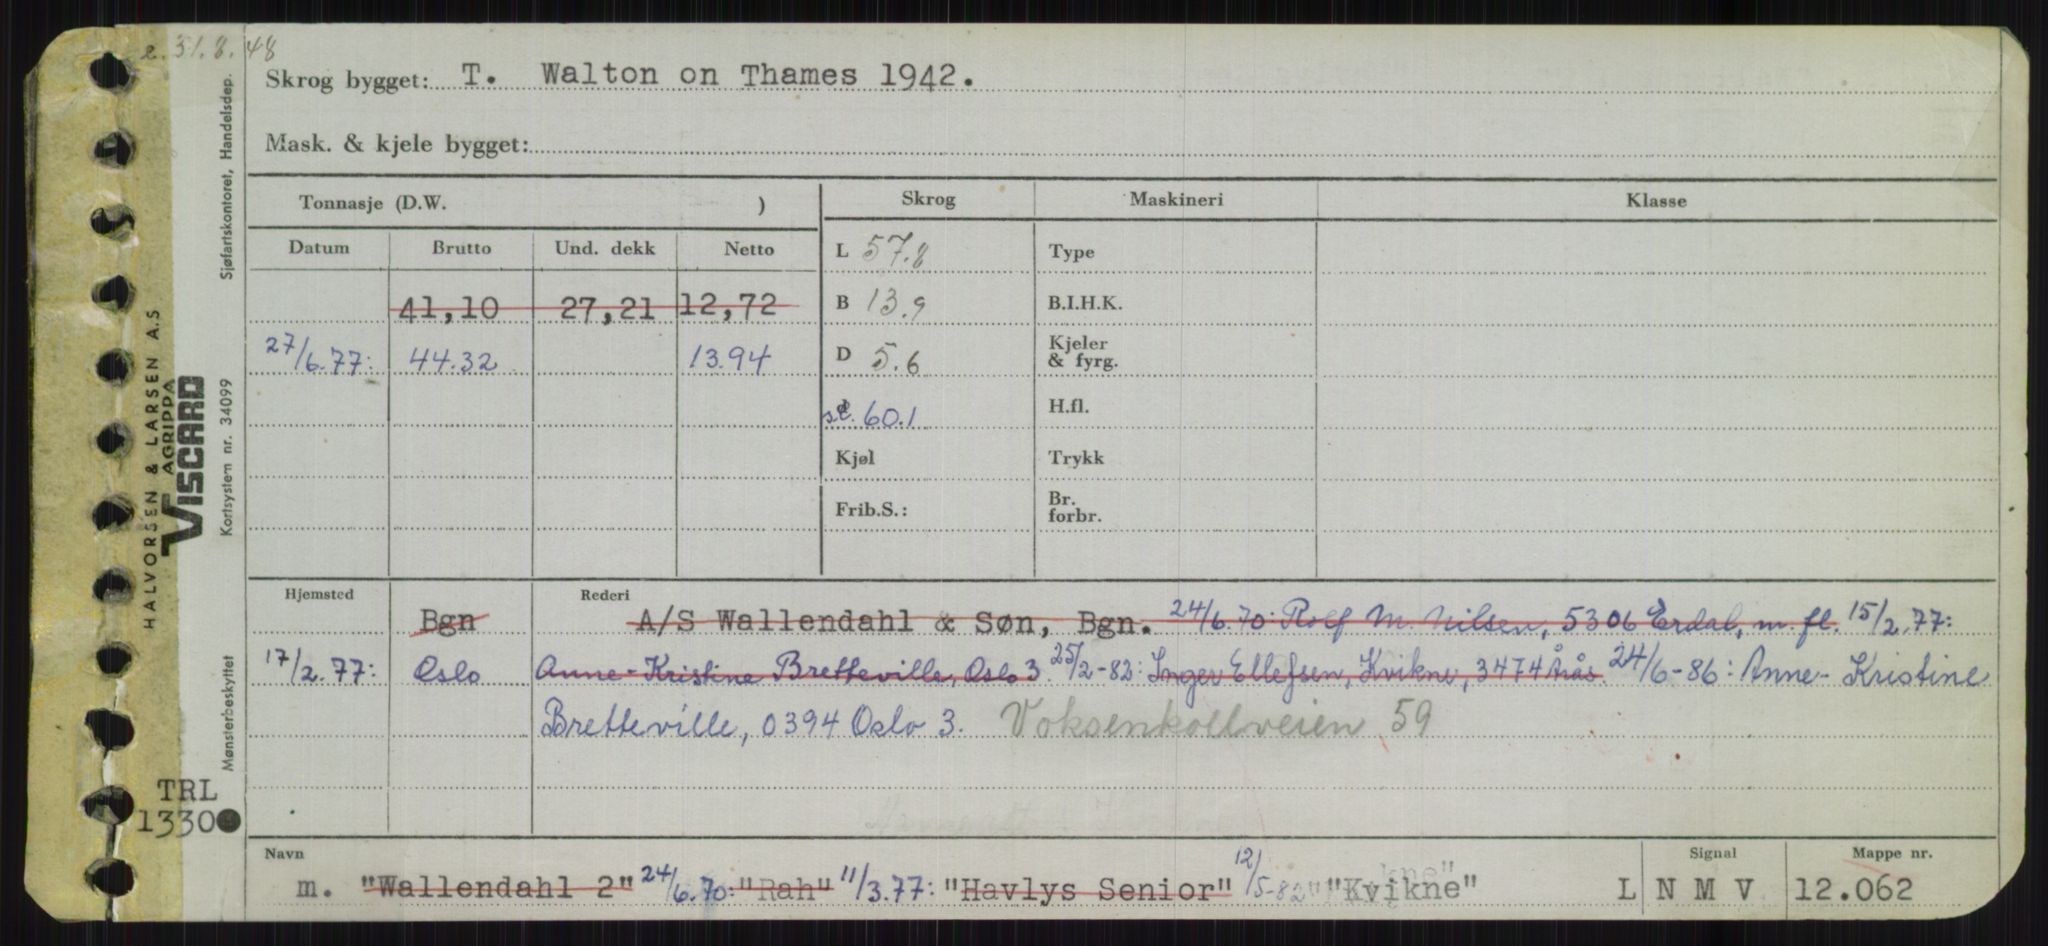 e. 31.8.48
Skrog bygget: T. Walton on Thames 1942.
Mask. & kjele bygget:
Tonnasje (D.W. )
Skrog Maskineri Klasse
Datum Brutto Und. dekk Netto
L 57.8 Type
41,10 27,21 12,72
B 13.9 B.I.H.K.
27/6.77: 44.32 13.94
D 5.6 Kjeler & fyrg.
60.1 H.fl.
Kjøl Trykk
Frib.S.: Br. forbr.
Hjemsted Rederi
Bgn A/S Wallendahl & Søn, Bgn. 24/6.70: Rolf M. Nilsen, 5306 Erdal, m. fl. 15/2.77:
17/2.77: Oslo Anne-Kristine Bretteville, Oslo 3 25/2-82: Inger Ellefsen, Kvikne, 3474 Åros 24/6-86: Anne-Kristine
Bretteville, 0394 Oslo 3. Voksenkollveien 59
Navn Signal Mappe nr.
m. "Wallendahl 2" 24/6.70: "Rah" 11/3.77: "Havlys Senior" 12/5-82 "Kvikne" L N M V 12.062
TRL
1330
HALVORSEN & LARSEN A.S
AGRIPPA
VISCARD
Sjøfartskontoret, Handelsdep.
Kortsystem nr. 34099
Mønsterbeskyttet